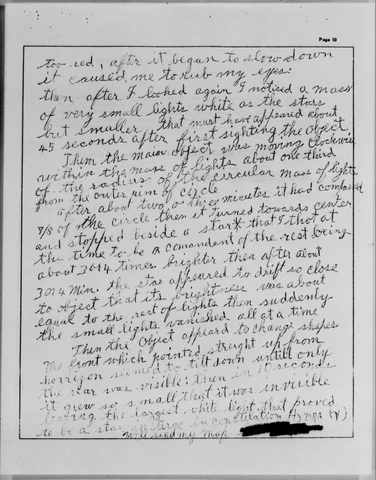 Page 10
too red, after it began to slow down
it caused me to rub my eyes.
then after I looked again I noticed a mass
of very small lights white as the stars
but smaller that must have appeared about
45 seconds after first sighting the object.
Then the main object was moving clockwise
within the mass of lights about one third
of the radius of the circular mass of lights
from the outer rim of circle
after about two o three minutes it had compased
7/8 of the circle then it turned towards center
and stopped beside a star that I thot at
the time to be a comandent of the rest being
about 3 or 4 times brighter then after about
3 or 4 Min. the star appeared to drift so close
to object that its brightness was about
equal to the rest of lights then suddenly
the small lights vanished all at a time
Then the Object appeard to change shapes
The front which pointed streight up from
horrizon seemed to tilt down untill only
the rear was visible; then in 10 seconds
it grew so small that it was invisible
leaving the largest white light that proved
to be a star in constillation
will send my map